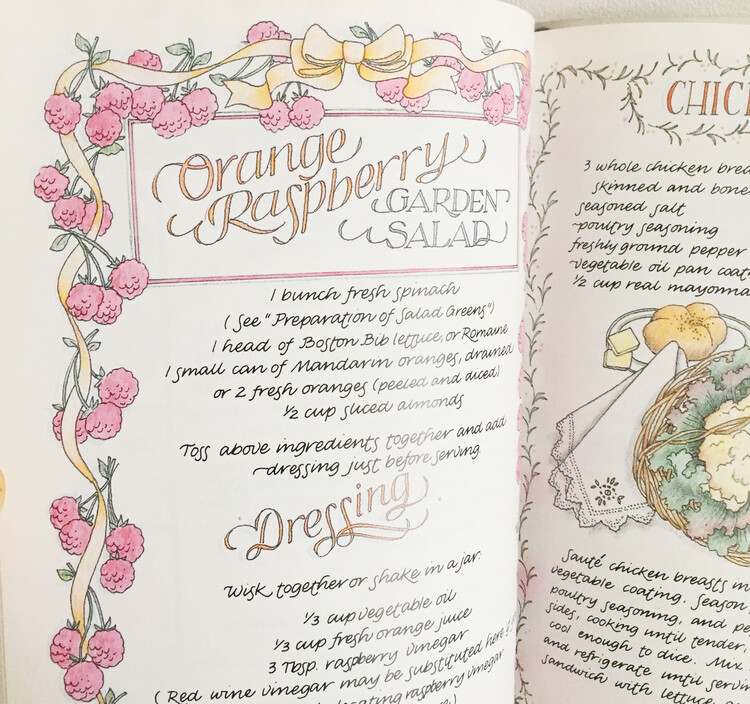 Orange
Raspberry
GARDEN
SALAD
1 bunch fresh spinach
(See "Preparation of Salad Greens")
1 head of Boston Bib lettuce, or Romaine
1 small can of Mandarin oranges, drained
or 2 fresh oranges (peeled and diced)
1/2 cup sliced almonds
Toss above ingredients together and add
dressing just before serving
Dressing
Wisk together or shake in a jar:
1/3 cup vegetable oil
1/3 cup fresh orange juice
3 Tbsp. raspberry vinegar
(Red wine vinegar may be substituted here if
raspberry vinegar
3 whole chicken
skinned and
seasoned salt
poultry seasoning
freshly ground pepper
vegetable oil pan
1/2 cup real
Sauté chicken breasts in
vegetable coating. Season
poultry seasoning, and
sides, cooking until tender,
cool enough to dice. Mix
and refrigerate until
sandwich with lettuce,